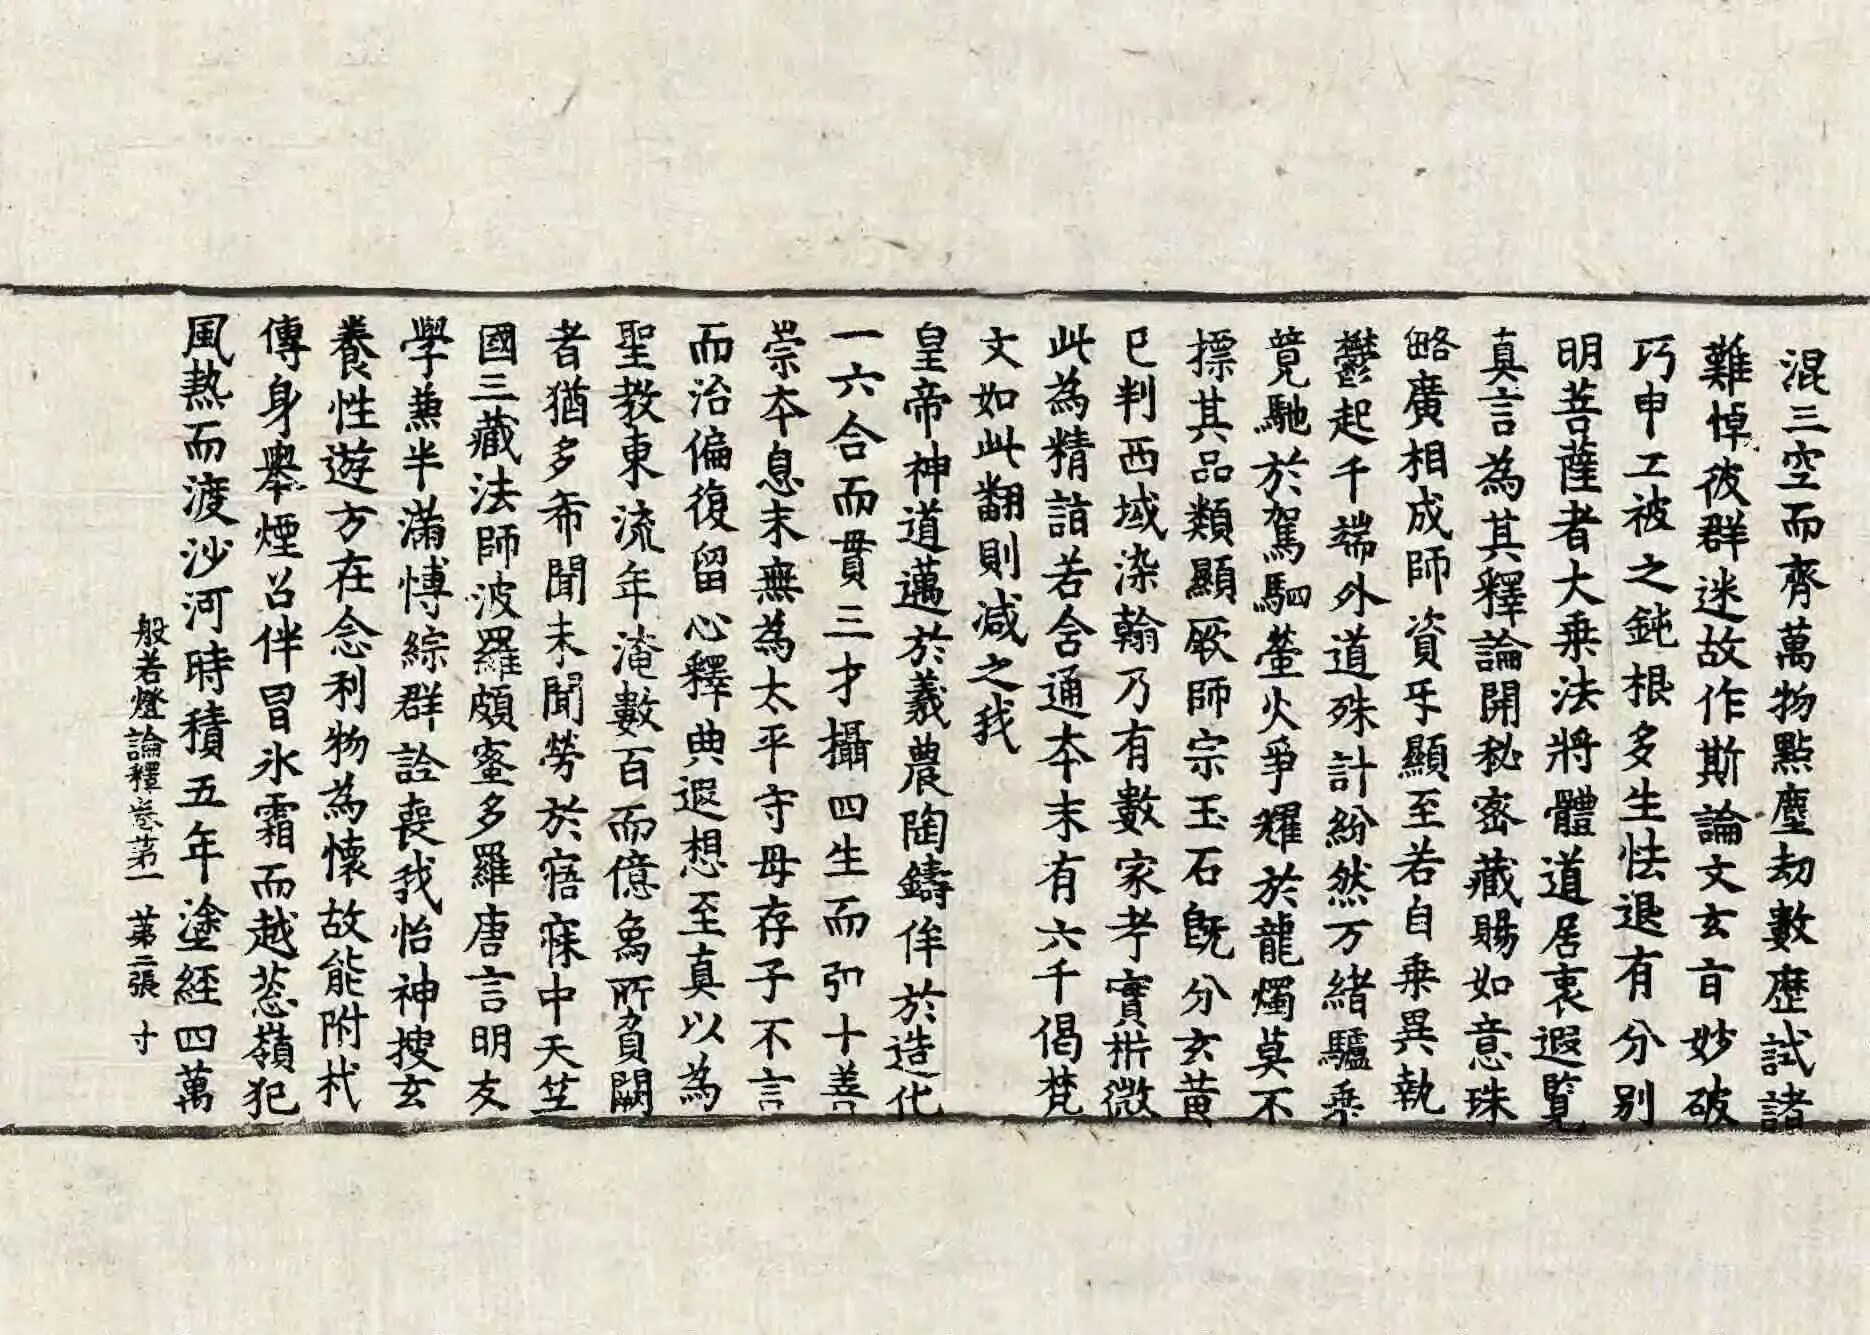 混三空而齊萬物點塵劫數歷試諸
難悼彼群迷故作斯論文玄旨妙破
巧申工被之鈍根多生怯退有分別
明菩薩者大乘法將體道居衷遐覧
真言為其釋論開秘密藏賜如意珠
略廣相成師資互顯至若自乘異執
鬱起千端外道殊計紛然万緒驢乗
競馳於駕駟螢火爭耀於龍燭莫不
摽其品類顯厥師宗玉石既分玄黄
已判西域染翰乃有數家考實析微
此為精詣若含通本末有六千偈梵
文如此翻則減之我
皇帝神道邁於羲農陶鑄侔於造化
一六合而貫三才攝四生而弘十善
崇本息末無為太平守母存子不言
而治偏復留心釋典遐想至真以為
聖教東流年淹數百而億象所負闕
者猶多希聞未聞勞於寤寐中天竺
國三藏法師波羅頗蜜多羅唐言明友
學兼半滿博綜群詮喪我怡神搜玄
養性遊方在念利物為懷故能附杙
傳身舉煙召伴冒氷霜而越葱嶺犯
風熱而渡沙河時積五年塗經四萬
般若燈論釋卷第一 第二張 寸